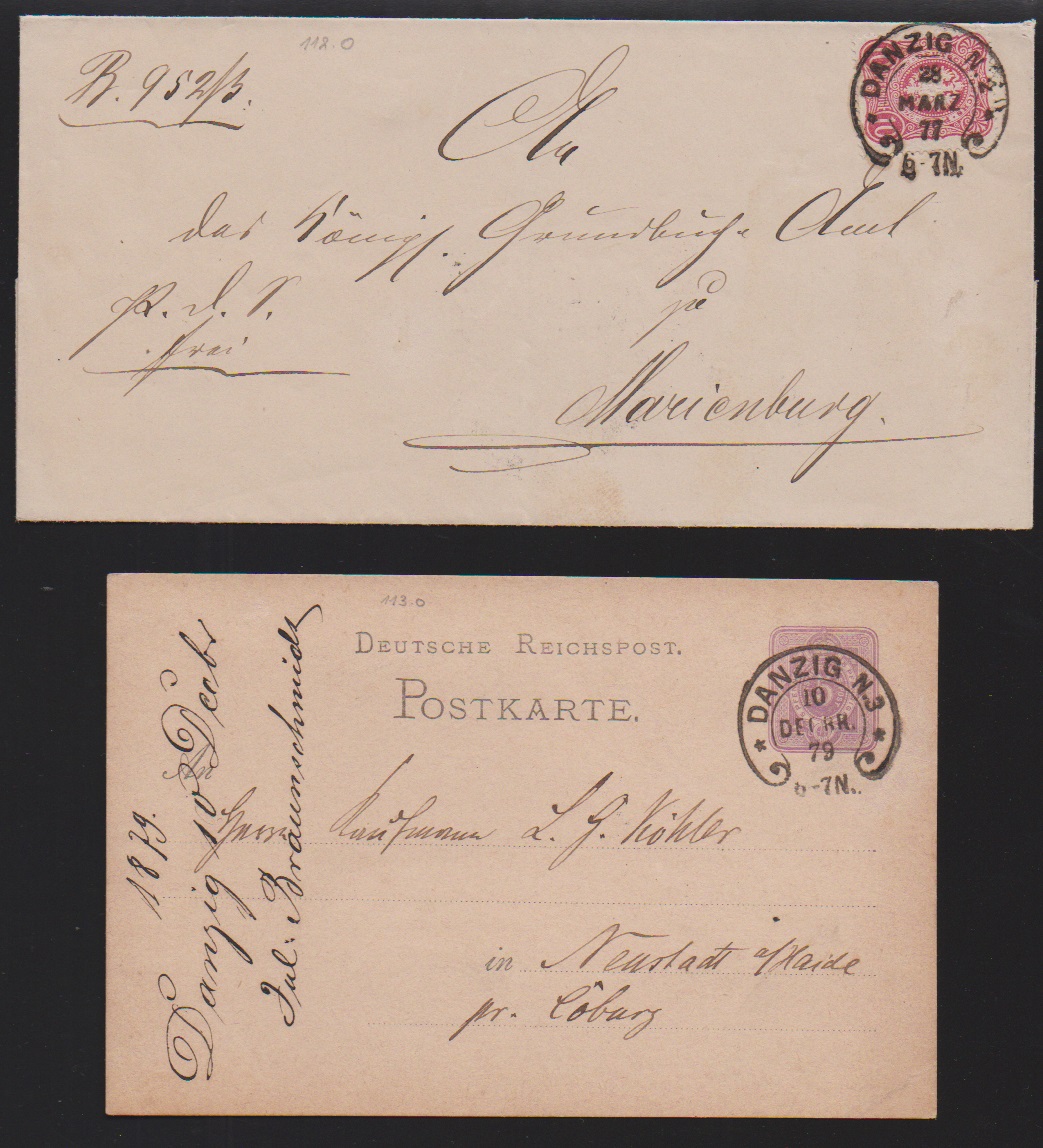 112.0
R. 952/3.
An
das Königl. Grundbuch- Amt
zu
Marienburg.
P. d. S.
frei
10
DANZIG N. 2
28
MAERZ
77
6-7N.
113.0
DEUTSCHE REICHSPOST.
POSTKARTE.
DANZIG N.3
10
DECBR.
79
6-7N.
An
Herrn Kaufmann L. G. Köhler
in Neustadt a/Haide
pr. Coburg
1879.
Danzig 10 Decbr
Jul. Braunschmidt